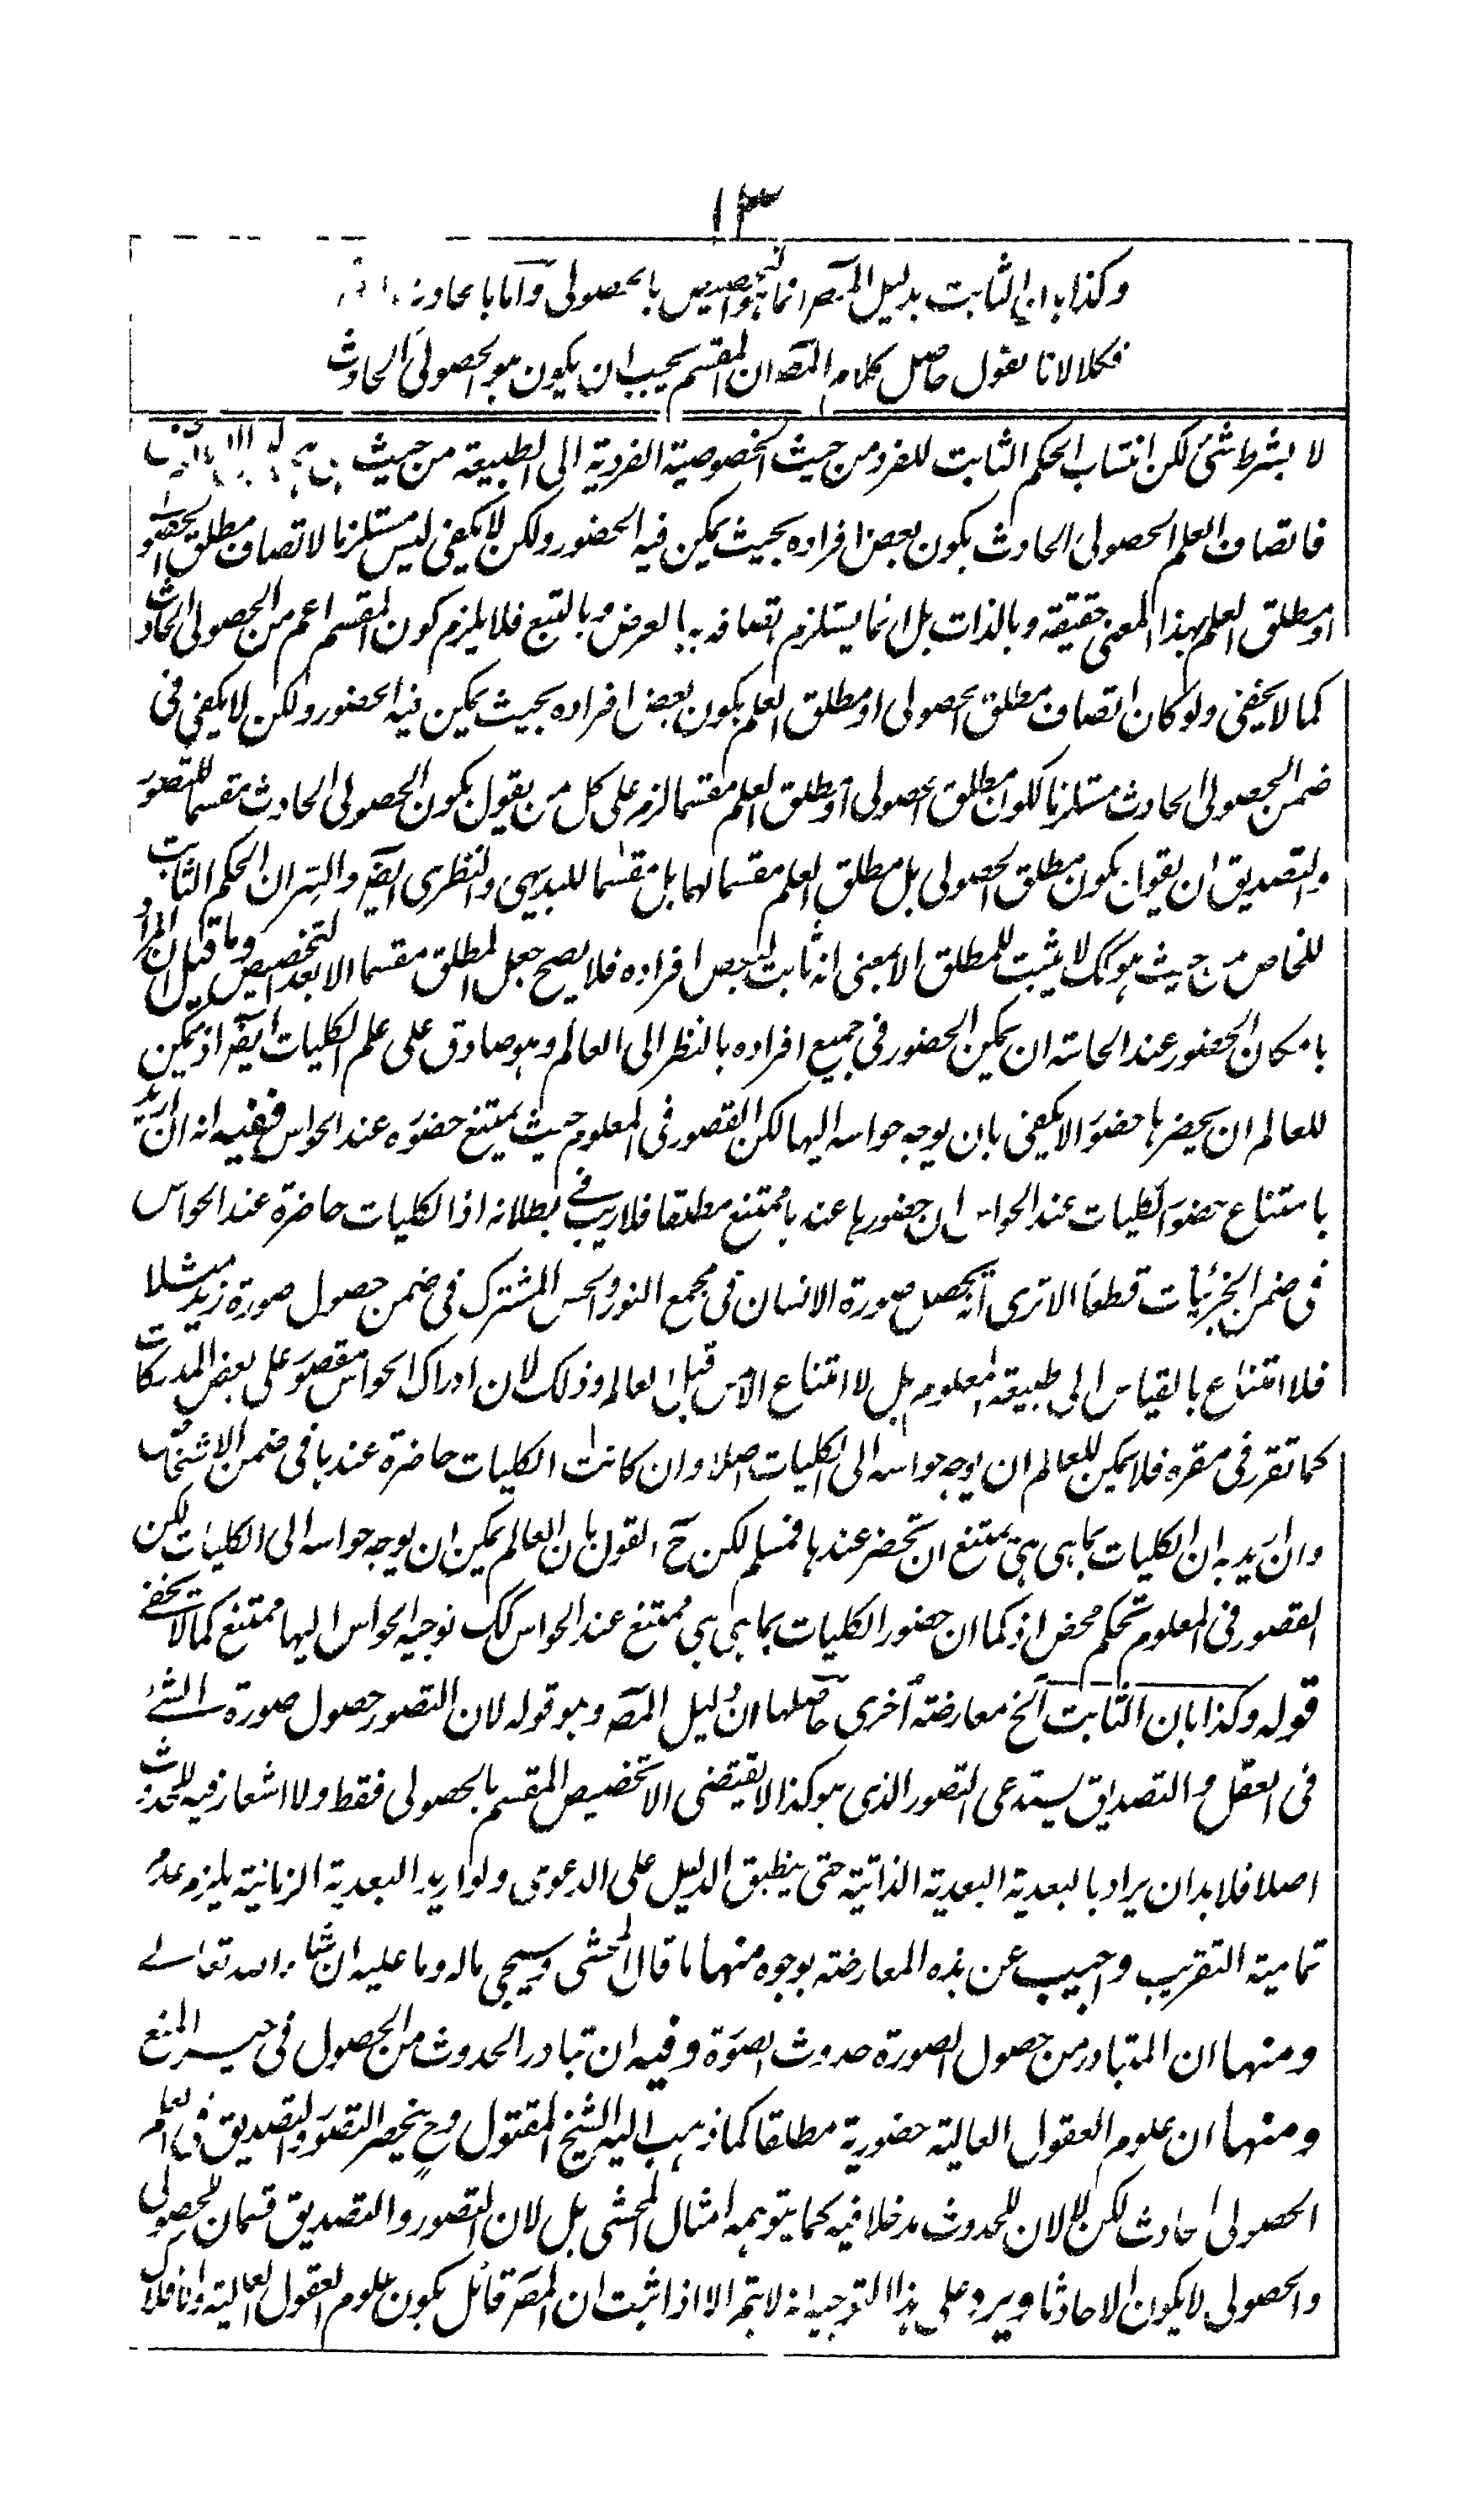 ١٣
وكذا بان الثابت بدليل المصـ انما هو التخصيص بالحصولى واما بالحادث
فكلا لانا نقول حاصل كلام المصـ ان المقسم يجب ان يكون هو الحصولى الحادث
لا بشرط شئ لكن انتساب الحكم الثابت للفرد من حيث الخصوصية الفردية الى الطبيعة من حيث
فاتصاف العلم الحصولى الحادث بكون بعض افراده بحيث يمكن فيه الحضور ولكن لا يكفى ليس مستلزما لاتصاف مطلق الحصولى
او مطلق العلم بهذا المعنى حقيقة وبالذات بل انما يستلزم اتصافه به بالعرض وبالتبع فلا يلزم كون المقسم اعم من الحصولى الحادث
كما لا يخفى ولو كان اتصاف مطلق الحصولى او مطلق العلم بكون بعض افراده بحيث يمكن فيه الحضور ولكن لا يكفى فى
ضمن الحصولى الحادث مستلزما لكون مطلق الحصولى او مطلق العلم مقسما لزم على كل من يقول بكون الحصولى الحادث مقسما للتصور
والتصديق ان يقول بكون مطلق الحصولى بل مطلق العلم مقسما لهما بل مقسما للبديهى والنظرى ايضا والسر ان الحكم الثابت
للخاص من حيث هو كك لا يثبت للمطلق الا بمعنى انه ثابت لبعض افراده فلا يصح جعل المطلق مقسما الا بعد التخصيص وما قيل ان المراد
بامكان الحضور عند الحاسة ان يمكن الحضور فى جميع افراده بالنظر الى العالم وهو صادق على علم الكليات ايضا اذ يمكن
للعالم ان يحضرها حضورا لا يكفى بان يوجه حواسه اليها لكن القصور فى المعلوم حيث يمتنع حضوره عند الحواس ففيه انه ان اريد
بامتناع حضور الكليات عند الحواس ان حضورها عندها ممتنع مطلقا فلا ريب فى بطلانه اذ الكليات حاضرة عند الحواس
فى ضمن الجزئيات قطعا الا ترى انه يحصل صورة الانسان فى مجمع النور والحس المشترك فى ضمن حصول صورة زيد مثلا
فلا امتناع بالقياس الى طبيعة المعلوم بل لا امتناع الا من قبل العالم وذلك لان ادراك الحواس مقصور على بعض المدركات
كما تقرر فى مقره فلا يمكن للعالم ان يوجه حواسه الى الكليات اصلا وان كانت الكليات حاضرة عندها فى ضمن الاشخاص
وان اريد به ان الكليات بما هى هى يمتنع ان تحضر عندها فمسلم لكن ح القول بان العالم يمكن ان يوجه حواسه الى الكليات لكن
القصور فى المعلوم تحكم محض اذ كما ان حضور الكليات بما هى هى ممتنع عند الحواس كك توجيه الحواس اليها ممتنع كما لا يخفى
قوله وكذا بان الثابت الخ معارضة اخرى حاصلها ان دليل المصـ وهو قوله لان التصور حصول صورة الشئ
فى العقل والتصديق يستدعى التصور الذى هو كذا لا يقتضى الا تخصيص المقسم بالحصولى فقط ولا اشعار فيه للحدوث
اصلا فلا بد ان يراد بالبعدية البعدية الذاتية حتى ينطبق الدليل على الدعوى ولو اريد البعدية الزمانية يلزم عدم
تمامية التقريب واجيب عن هذه المعارضة بوجوه منها ما قال المحشى وسيجئ ما له وما عليه ان شاء الله تعالى
ومنها ان المتبادر من حصول الصورة حدوث الصورة وفيه ان تبادر الحدوث من الحصول فى حيز المنع
ومنها ان علوم العقول العالية حضورية مطلقا كما ذهب اليه الشيخ المقتول وح ينحصر التصور والتصديق فى العلم
الحصولى الحادث لكن لا لان للحدوث مدخلا فيه كما يتوهمه امثال المحشى بل لان التصور والتصديق قسمان للحصولى
والحصولى لا يكون الا حادثا ويرد على هذا التوجيه انه لا يتم الا اذا ثبت ان المصـ قائل بكون علوم العقول العالية